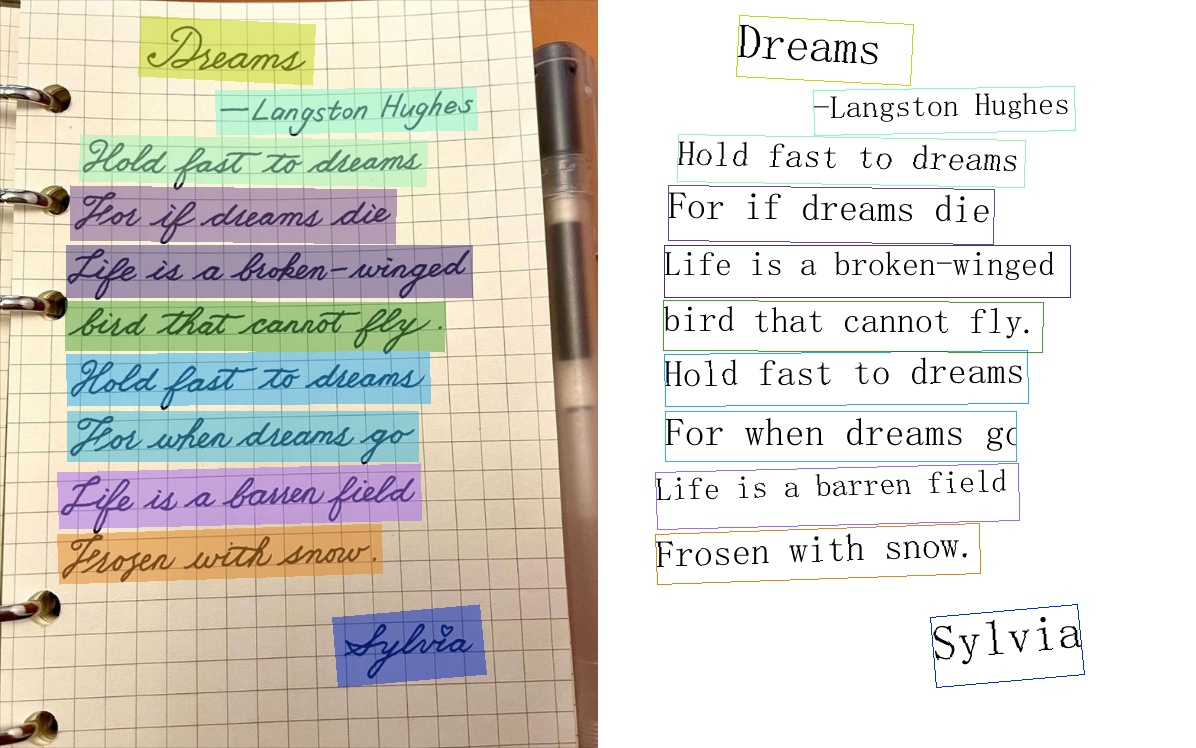 Dreams
—Langston Hughes
Hold fast to dreams
For if dreams die
Life is a broken-winged
bird that cannot fly.
Hold fast to dreams
For when dreams go
Life is a barren field
Frozen with snow.
Sylvia
Dreams
—Langston Hughes
Hold fast to dreams
For if dreams die
Life is a broken-winged
bird that cannot fly.
Hold fast to dreams
For when dreams go
Life is a barren field
Frosen with snow.
Sylvia